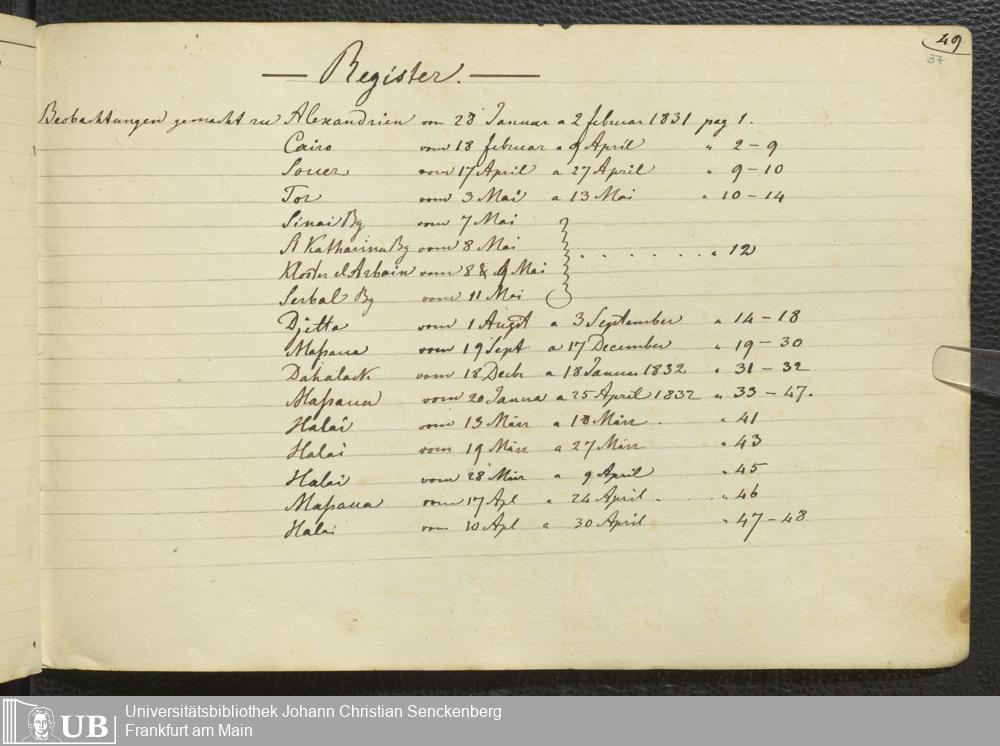 49
37
— Register. —
Beobachtungen gemacht zu Alexandrien vom 28 Januar a 2 februar 1831 pag 1.
Cairo vom 18 februar a 9 April " 2-9
Souez vom 17 April a 27 April " 9-10
Tor vom 3 Mai a 13 Mai " 10-14
Sinai Bg vom 7 Mai
St Katharina Bg vom 8 Mai . . . . . . . " 12
Kloster el Arbain vom 8 & 9 Mai
Serbal Bg vom 11 Mai
Djetta vom 1 Augst a 3 September " 14-18
Maßaua vom 19 Sept a 17 December " 19-30
Dahalack vom 18 Decbr a 18 Januar 1832 " 31-32
Maßaua vom 20 Janua a 25 April 1832 " 33-47.
Halai vom 13 März a 18 März . " 41
Halai vom 19 März a 27 März " 43
Halai vom 28 März a 9 April " 45
Maßaua vom 17 Apl a 24 April . . . " 46
Halai vom 10 Apl a 30 April " 47-48
UB
Universitätsbibliothek Johann Christian Senckenberg
Frankfurt am Main